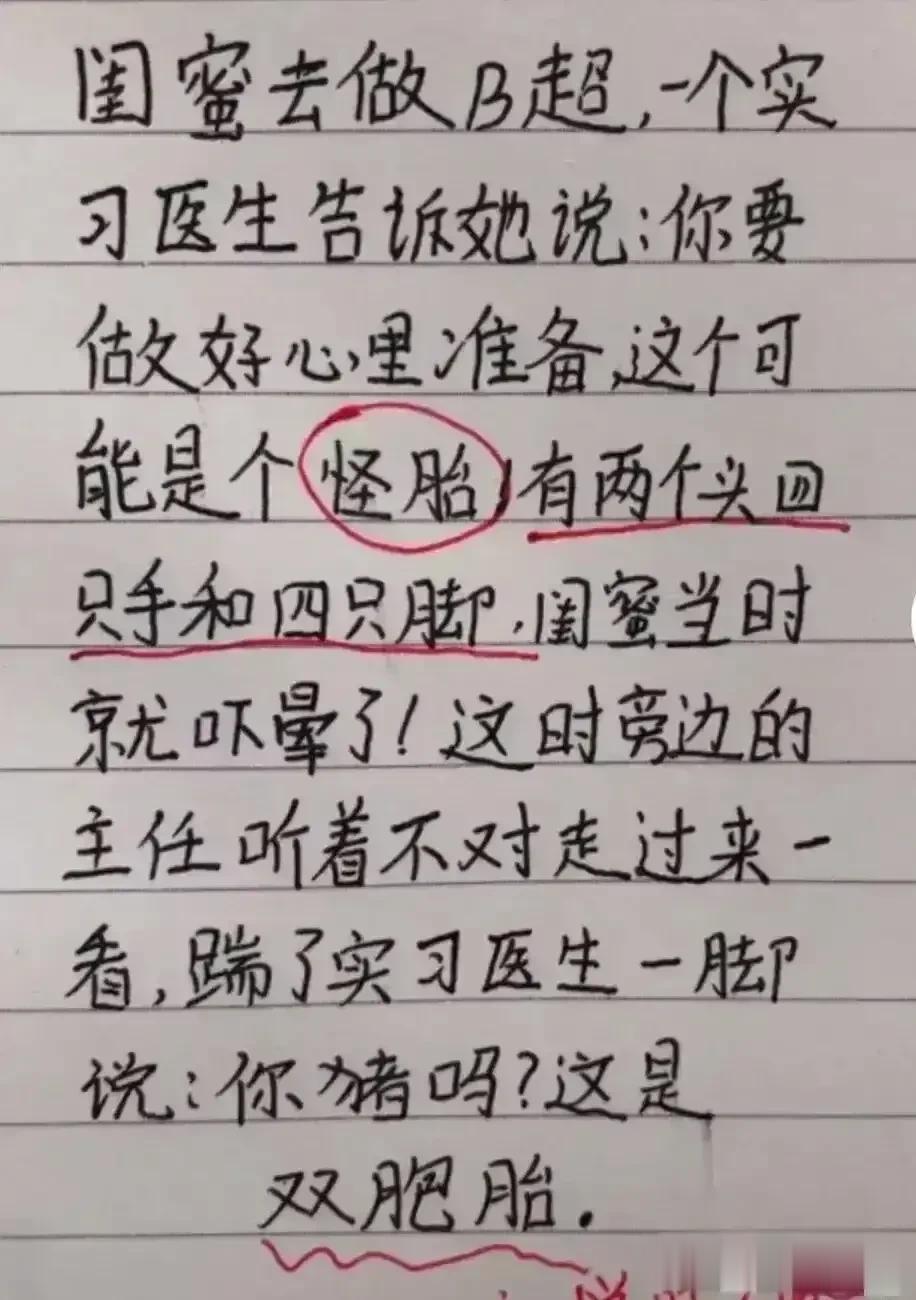 闺蜜去做B超,一个实
习医生告诉她说:你要
做好心里准备,这个可
能是个怪胎,有两个头四
只手和四只脚,闺蜜当时
就吓晕了!这时旁边的
主任听着不对走过来一
看,踹了实习医生一脚
说:你猪吗?这是
双胞胎.